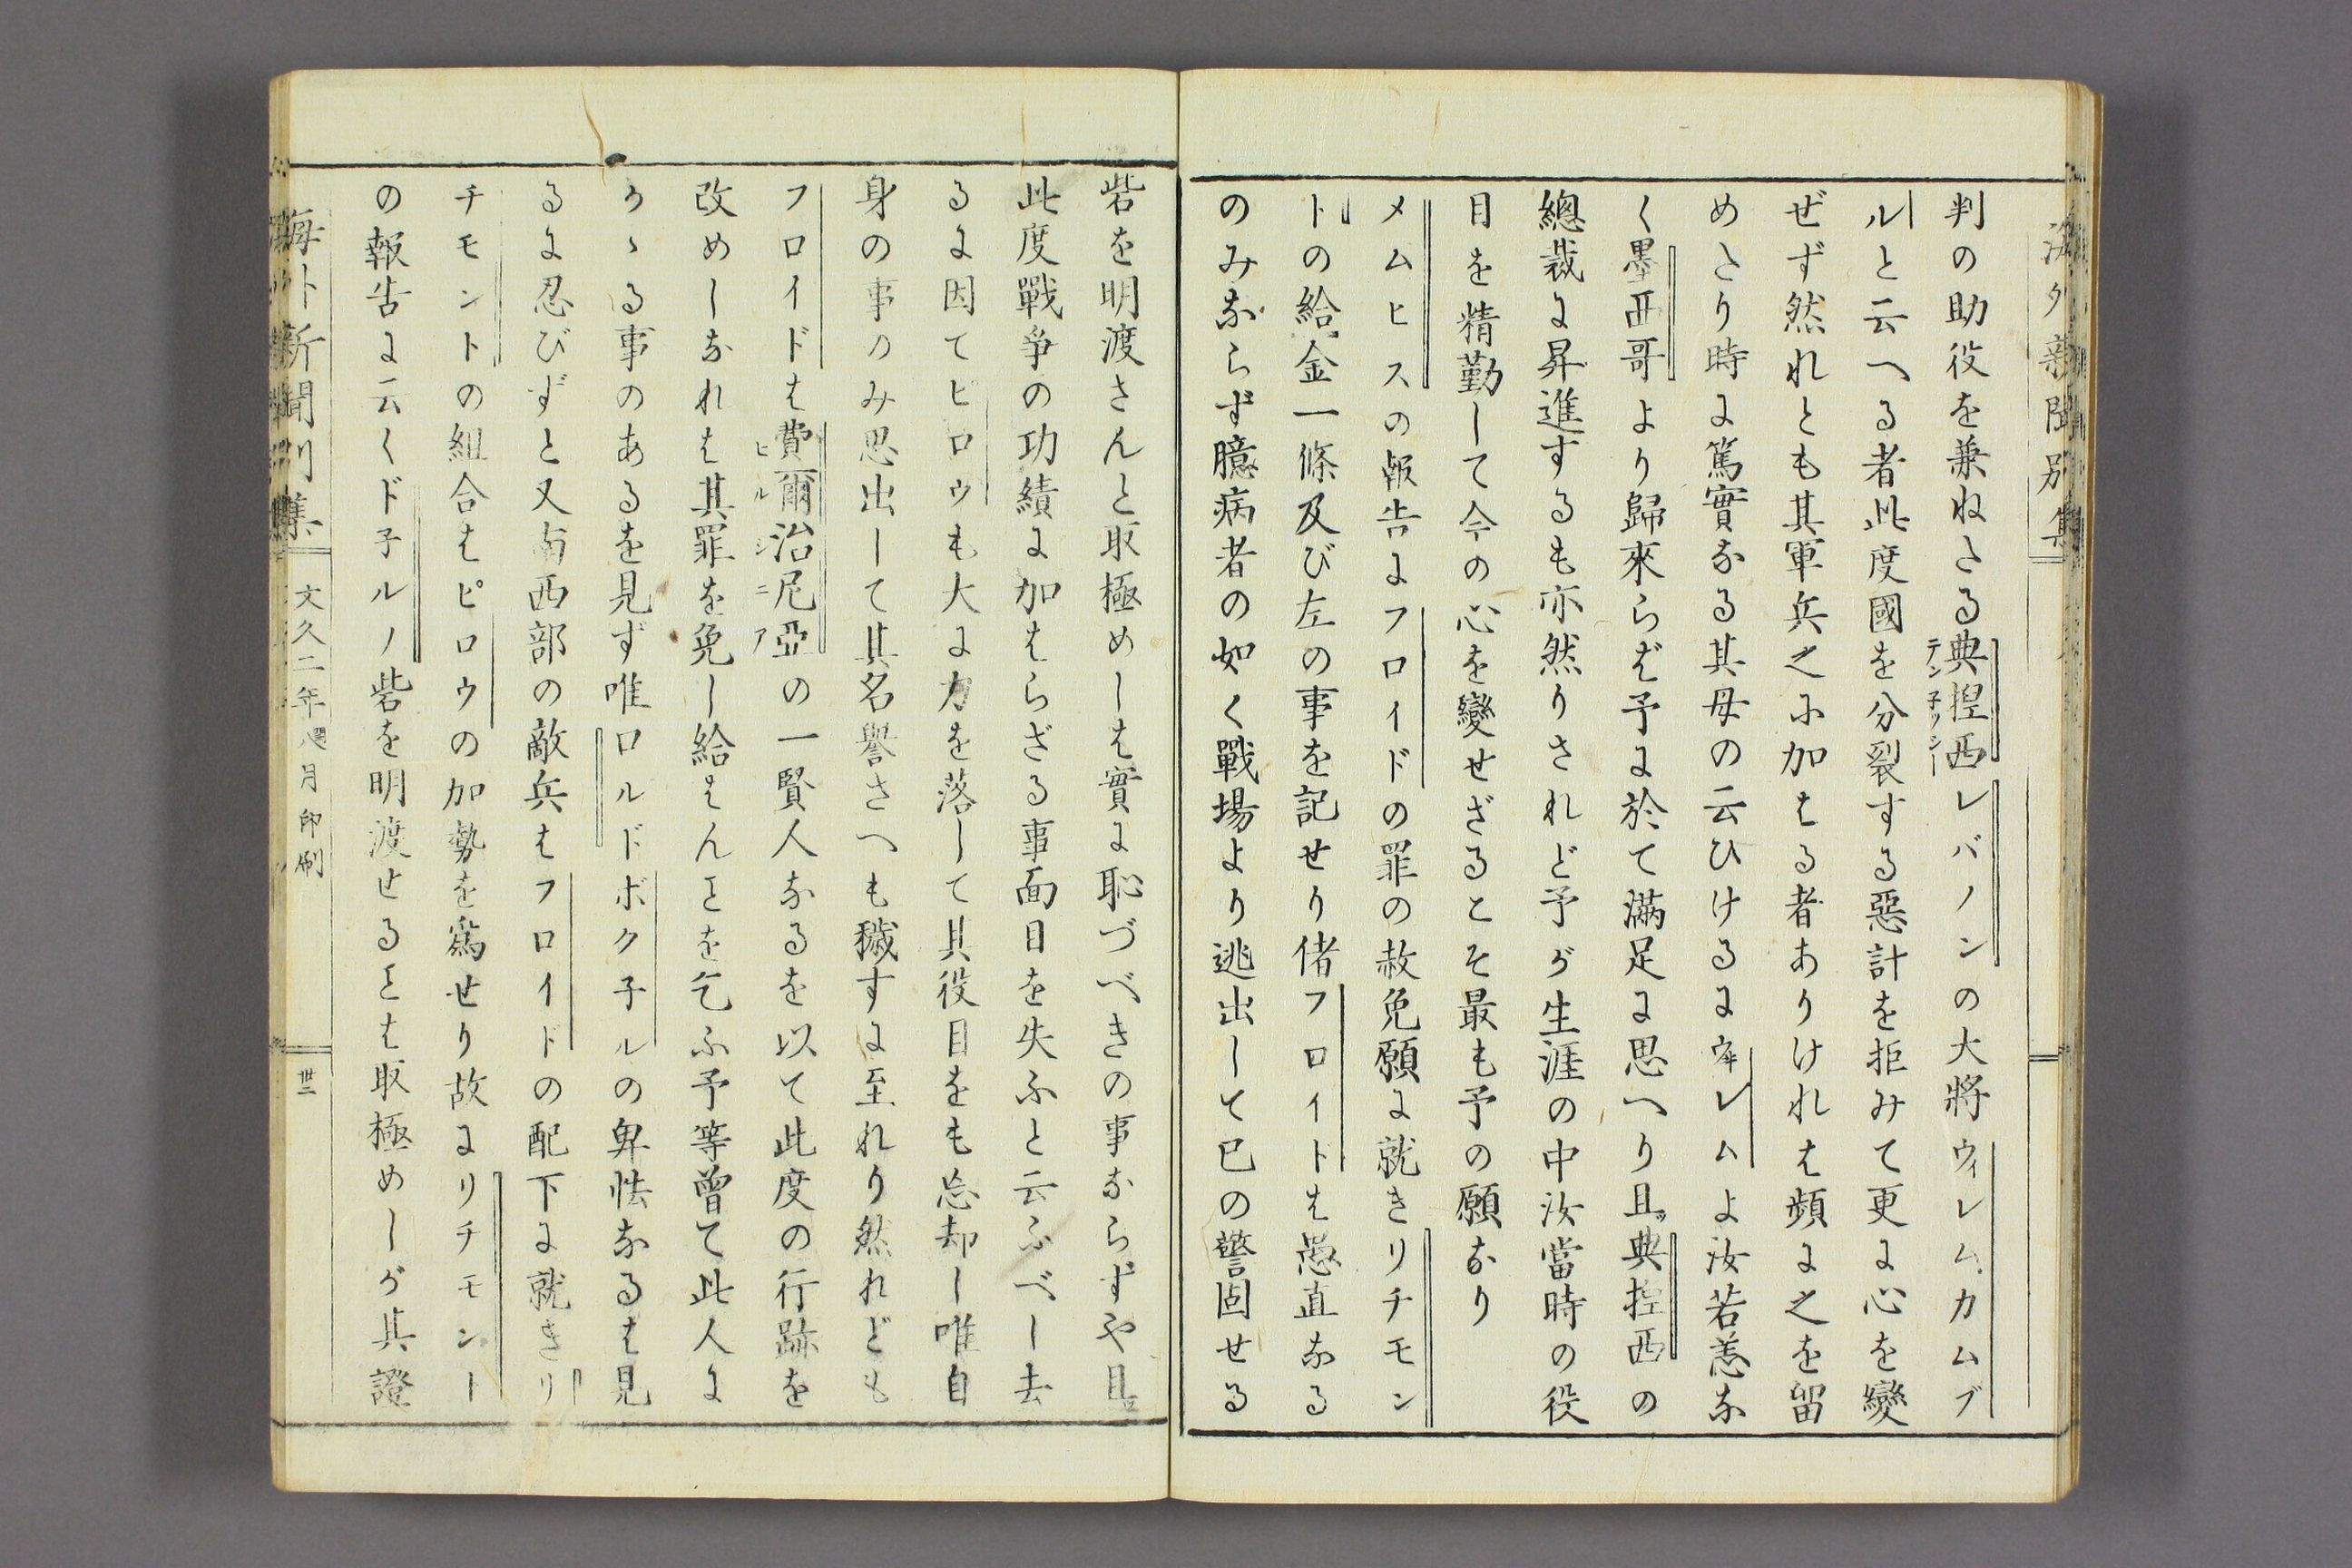 海外新聞別集
判の助役を兼ねたる典捏西レバノンの大將ウィレムカムブ
テン子ッシー
ルと云へる者此度國を分裂する惡計を拒みて更に心を變
ぜず然れとも其軍兵之に加はる者ありけれは頻に之を留
めたり時に篤實なる其母の云ひけるはウ井レムよ汝若恙な
く墨西哥より歸來らば予に於て滿足に思へり且ッ典捏西の
總裁に昇進するも亦然りされど予が生涯の中汝當時の役
目を精勤して今の心を變せざるこそ最も予の願なり
メムヒスの報告にフロイドの罪の赦免願に就きリチモン
トの給金一條及び左の事を記せり偖フロイトは愚直なる
のみならず臆病者の如く戰場より逃出して已の警固せる
砦を明渡さんと取極めしは實に恥づべきの事ならずや且
此度戰爭の功績に加はらざる事面目を失ふと云ふべし去
るに因てピロウも大に力を落して其役目をも忘却し唯自
身の事のみ思出して其名譽さへも穢すに至れり然れども
フロイドは費爾治尼亞の一賢人なるを以て此度の行跡を
ヒルジニア
改めしなれは其罪を免し給はんことを乞ふ予等曾て此人に
かゝる事のあるを見ず唯ロルドボク子ルの卑怯なるは見
るに忍びずと又南西部の敵兵はフロイドの配下に就きリ
チモントの組合はピロウの加勢を爲せり故にリチモント
の報告に云くド子ルノ砦を明渡せることは取極めしが其證
海外新聞別集 文久二年八月印刷 卅二